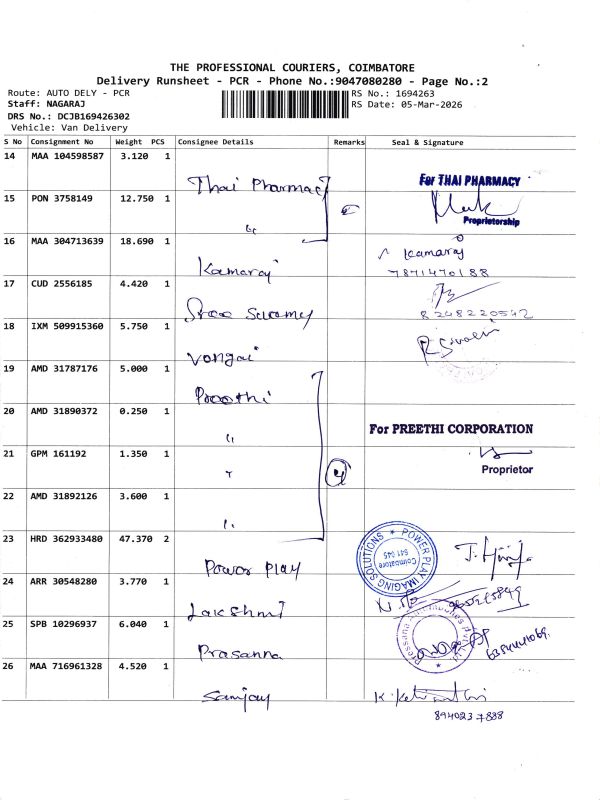 THE PROFESSIONAL COURIERS, COIMBATORE
Delivery Runsheet - PCR - Phone No.:9047080280 - Page No.:2
Route: AUTO DELY - PCR
RS No.: 1694263
Staff: NAGARAJ
RS Date: 05-Mar-2026
DRS No.: DCJB169426302
Vehicle: Van Delivery
S No Consignment No Weight PCS Consignee Details Remarks Seal & Signature
14 MAA 104598587 3.120 1 Thai Pharmacy For THAI PHARMACY
15 PON 3758149 12.750 1 " Proprietorship
16 MAA 304713639 18.690 1 Kamaraj Kamaraj
7871470188
17 CUD 2556185 4.420 1 Sree Swamy 8248220542
18 IXM 509915360 5.750 1 Vongai R Sivalri
19 AMD 31787176 5.000 1 Preethi
20 AMD 31890372 0.250 1 " For PREETHI CORPORATION
21 GPM 161192 1.350 1 " 4 Proprietor
22 AMD 31892126 3.600 1 "
23 HRD 362933480 47.370 2 Power Play POWER PLAY IMAGING SOLUTIONS Coimbatore 641 045
24 ARR 30548280 3.770 1 Lakshmi
25 SPB 10296937 6.040 1 Prasanna
26 MAA 716961328 4.520 1 Sanjay
8940237888